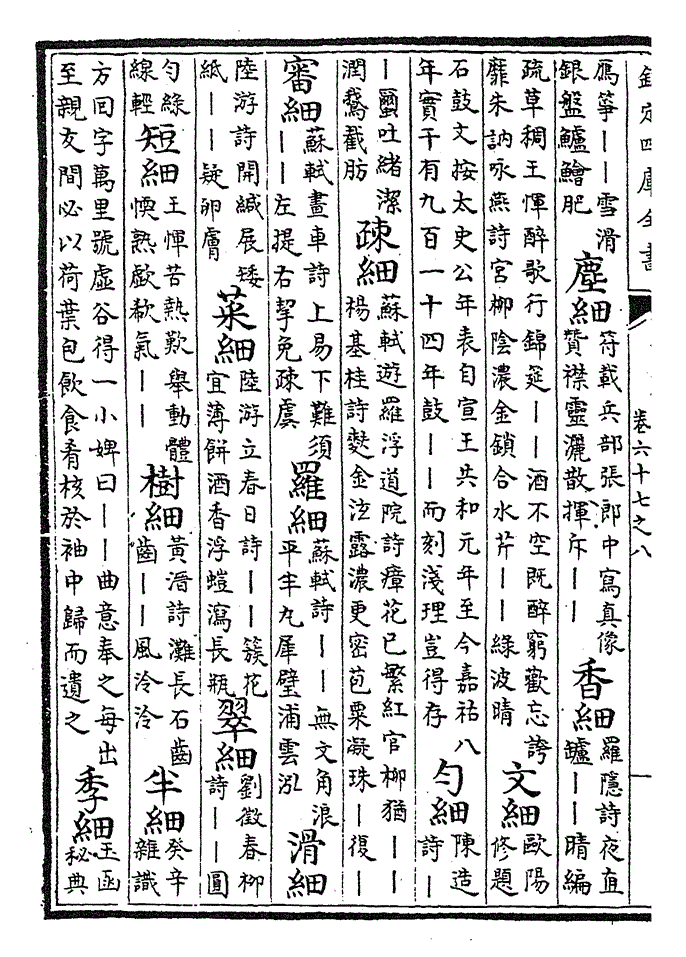 欽定四庫全書
卷六十七之八
一
鴈箏——雪滑
銀盤鱸鱠肥
塵細
符載兵部張郎中寫真像
贊襟靈灑散揮斥——
香細
羅隱詩夜直
罏——晴編
疏草稠王惲醉歌行錦筵——酒不空既醉窮歡忘誇
靡朱訥咏燕詩宮柳陰濃金鎖合水芹——綠波晴
文細
歐陽
修題
石鼓文按太史公年表自宣王共和元年至今嘉祐八
年實千有九百一十四年鼓——而刻淺理豈得存
勻細
陳造
詩—
—蠒吐緒潔
潤鵞截肪
疎細
蘇軾遊羅浮道院詩瘴花已繁紅官柳猶——
楊基桂詩麨金泣露濃更密苞粟凝珠—復—
審細
蘇軾畫車詩上易下難須
——左提右挈免疎虞
羅細
蘇軾詩——無文角浪
平半丸犀璧浦雲泓
滑細
陸游詩開緘展矮
紙——疑卵膚
菜細
陸游立春日詩——簇花
宜薄餅酒香浮螘瀉長瓶
翠細
劉徵春柳
詩——圓
勻綠
線輕
短細
王惲苦熱歎舉動體
愞熟歔欷氣——
樹細
黃溍詩灘長石齒
齒——風泠泠
半細
癸辛
雜識
方回字萬里號虛谷得一小婢曰——曲意奉之每出
至親友間必以荷葉包飲食肴核於袖中歸而遺之
季細
玉函
秘典